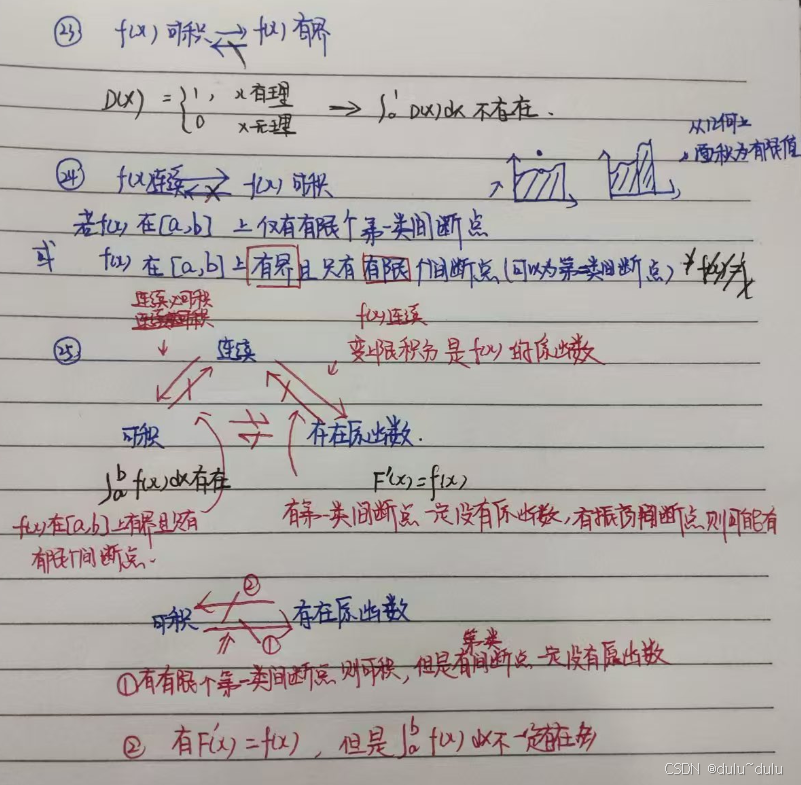 ㉓ f(x)可积 ⇄ f(x)有界
D(x) = { 1, x有理
0 x无理 → ∫₀¹ D(x)dx 不存在.
从几何上
面积为有限值
㉔ f(x)连续 ⇄ f(x)可积
若f(x)在[a,b]上仅有有限个第一类间断点
或 f(x)在[a,b]上有界且只有有限个间断点(可以为第一类间断点)
连续必可积
f(x)连续
变上限积分是f(x)的原函数
㉕ 连续
可积 ⇄ 存在原函数.
∫ₐᵇ f(x)dx存在 F'(x)=f(x)
有第一类间断点一定没有原函数,有振荡间断点则可能有
f(x)在[a,b]上有界且只有
有限个间断点.
②
可积 存在原函数
①
①有有限个第一类间断点则可积,但是有第一类间断点一定没有原函数
② 有F'(x)=f(x),但是∫ₐᵇ f(x)dx不一定存在
CSDN @dulu~dulu